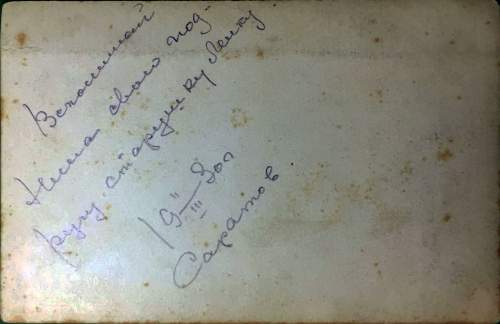 Вспоминай
Нина свою под-
ругу старушку Ленку.
19 "/III 30г
Саратов